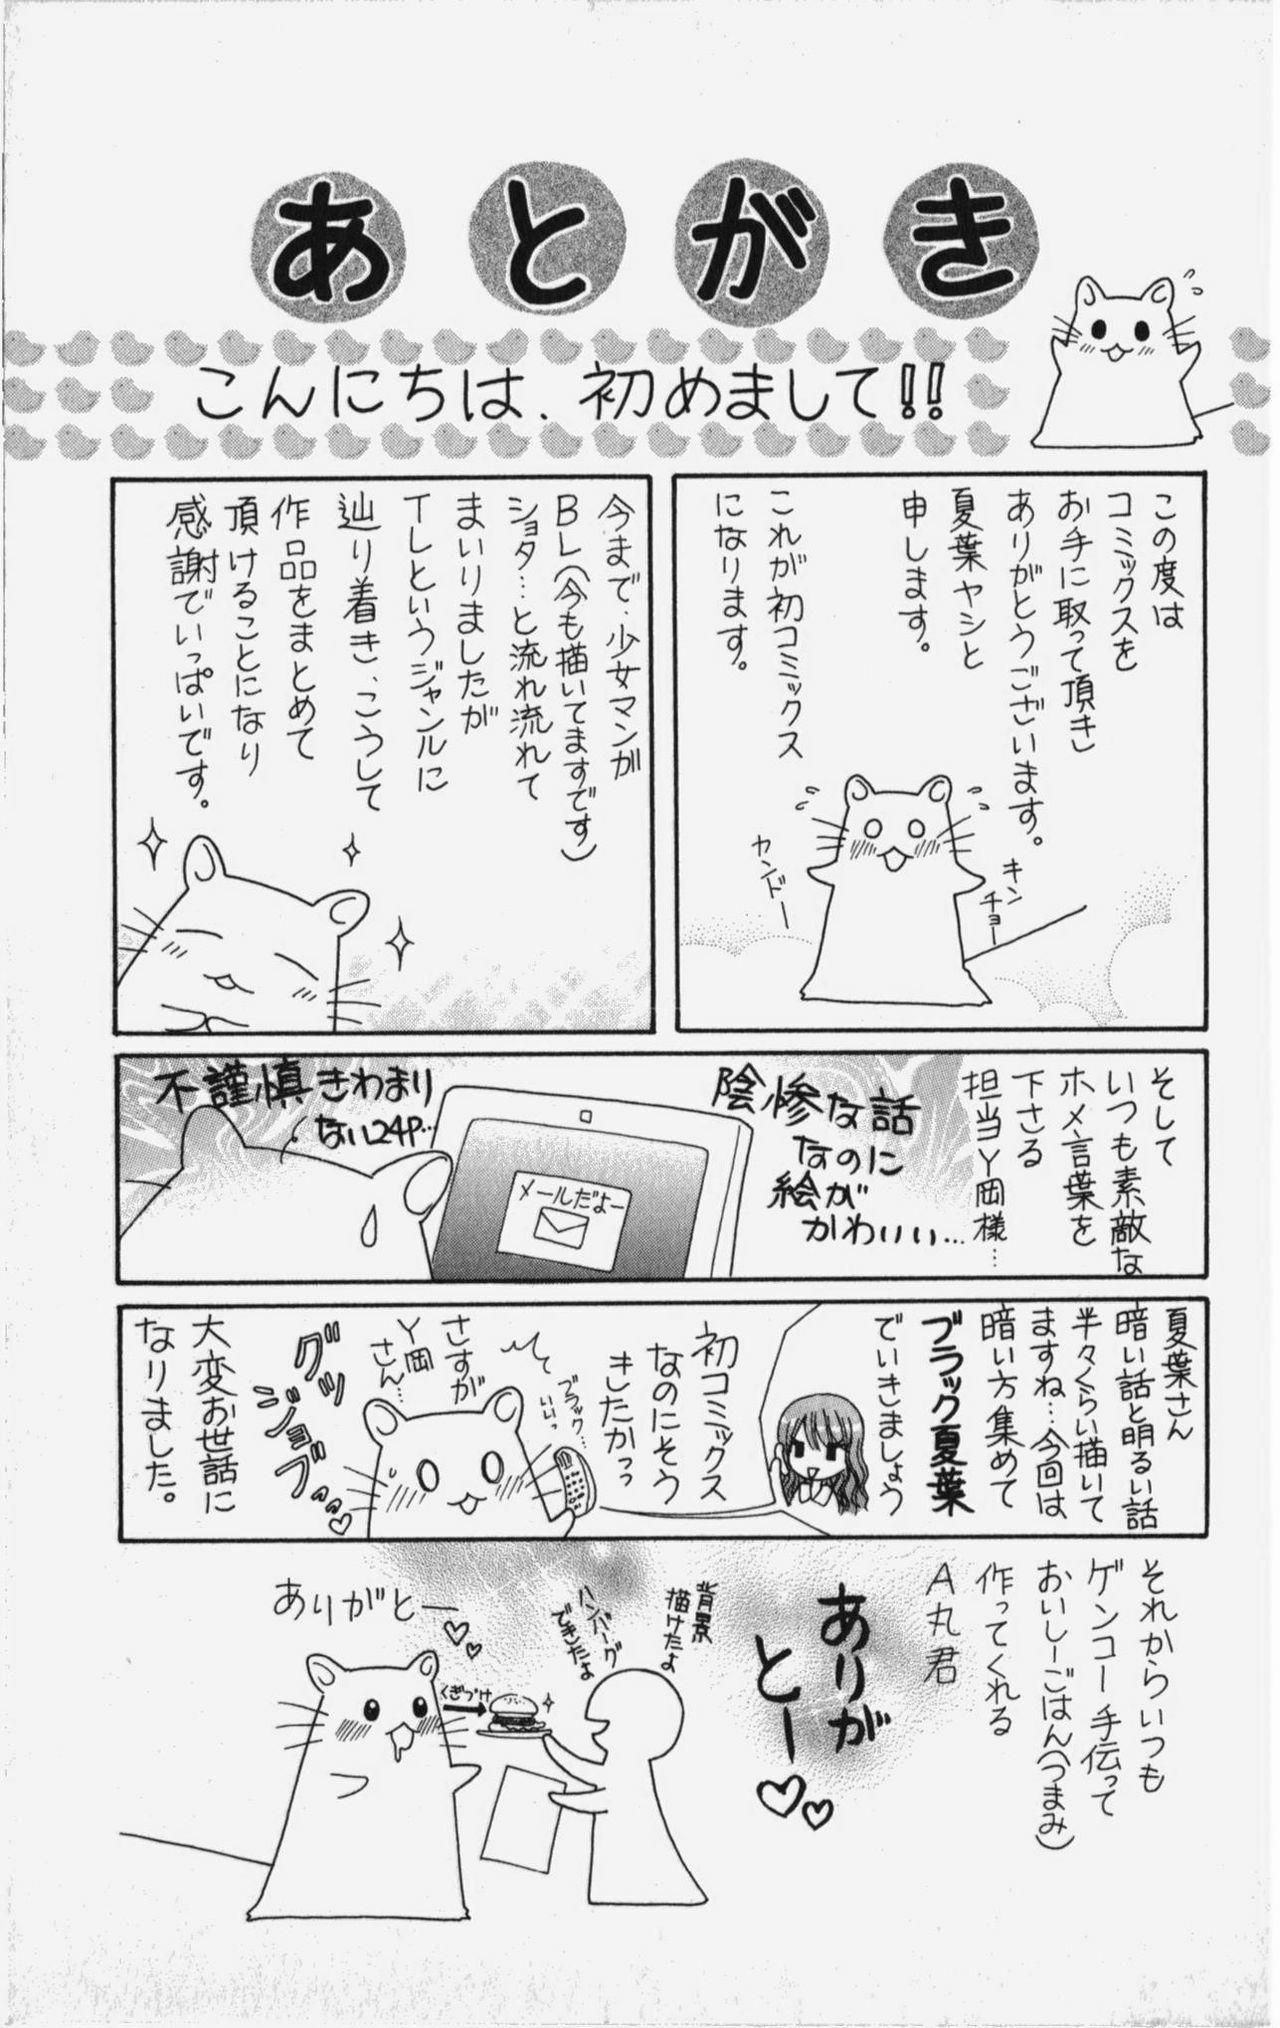 あとがき
こんにちは、初めまして!!
この度は
コミックスを
お手に取って頂き
ありがとうございます。
夏葉ヤシと
申します。
これが初コミックス
になります。
キンチョー
カンドー
今まで、少女マンガ
BL(今も描いてますです)
ショタ…と流れ流れて
まいりましたが
TLというジャンルに
辿り着き、こうして
作品をまとめて
頂けることになり
感謝でいっぱいです。
そして
いつも素敵な
ホメ言葉を
下さる
担当Y岡様…
陰惨な話
なのに
絵が
かわいい…
メールだよー
不謹慎きわまり
ない24P…
夏葉さん
暗い話と明るい話
半々くらい描いて
ますね…今回は
暗い方集めて
ブラック夏葉
でいきましょう
初コミックス
なのにそう
きたかっっ
ブラック…
いいっ
さすが
Y岡
さん…
グッ
ジョブ…
大変お世話に
なりました。
それからいつも
ゲンコー手伝って
おいしーごはん(つまみ)
作ってくれる
A丸君
ありが
とー
背景
描けたよ
ハンバーグ
できたよ
くぎづけ
ありがとー